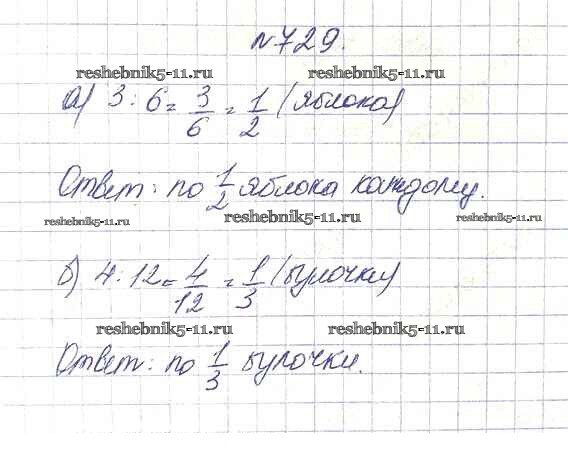 №729.
reshebnik5-11.ru reshebnik5-11.ru
а) 3 : 6 = 3/6 = 1/2 (яблока)
Ответ: по 1/2 яблока каждому.
reshebnik5-11.ru reshebnik5-11.ru reshebnik5-11.ru
б) 4 · 12 = 4/12 = 1/3 (булочки)
reshebnik5-11.ru reshebnik5-11.ru
Ответ: по 1/3 булочки.